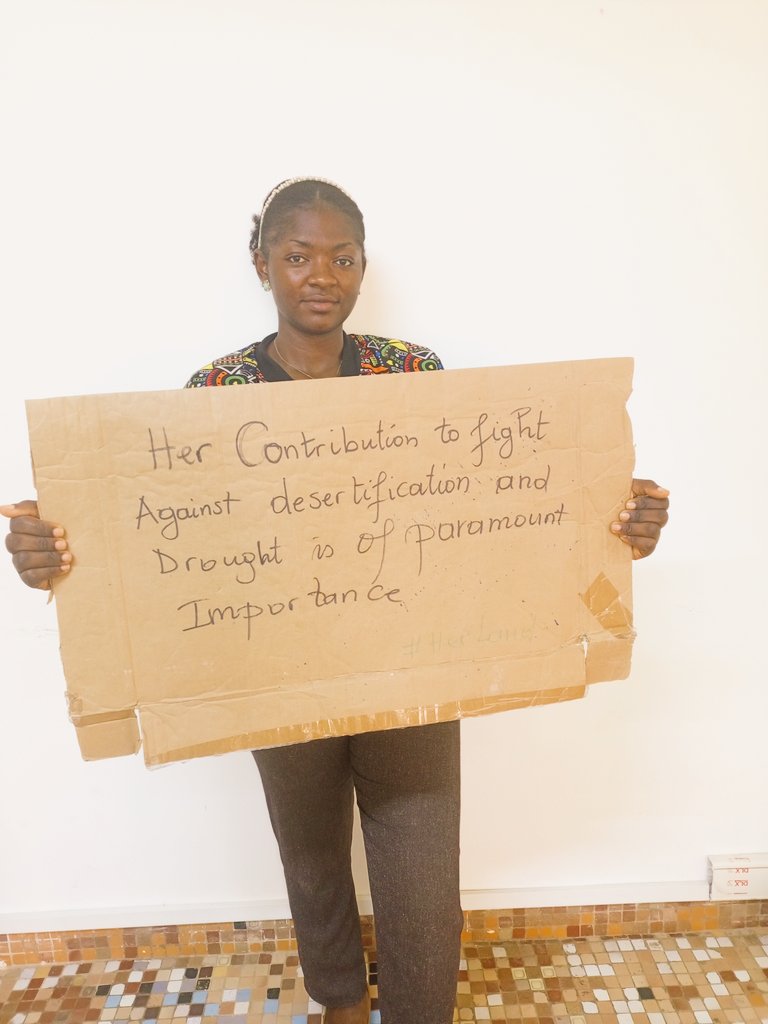 Her Contribution to fight
Against desertification and
Drought is of paramount
Importance
#HerLand
DLX
DLX